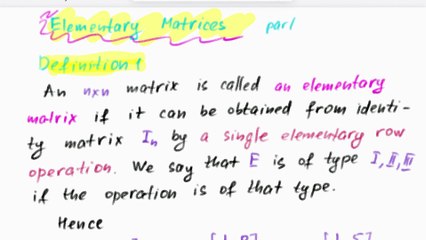 Elementary Matrices part
Definition 1
An nxn matrix is called an elementary
matrix if it can be obtained from identi-
ty matrix In by a single elementary row
operation. We say that E is of type I, II, III
if the operation is of that type.
Hence